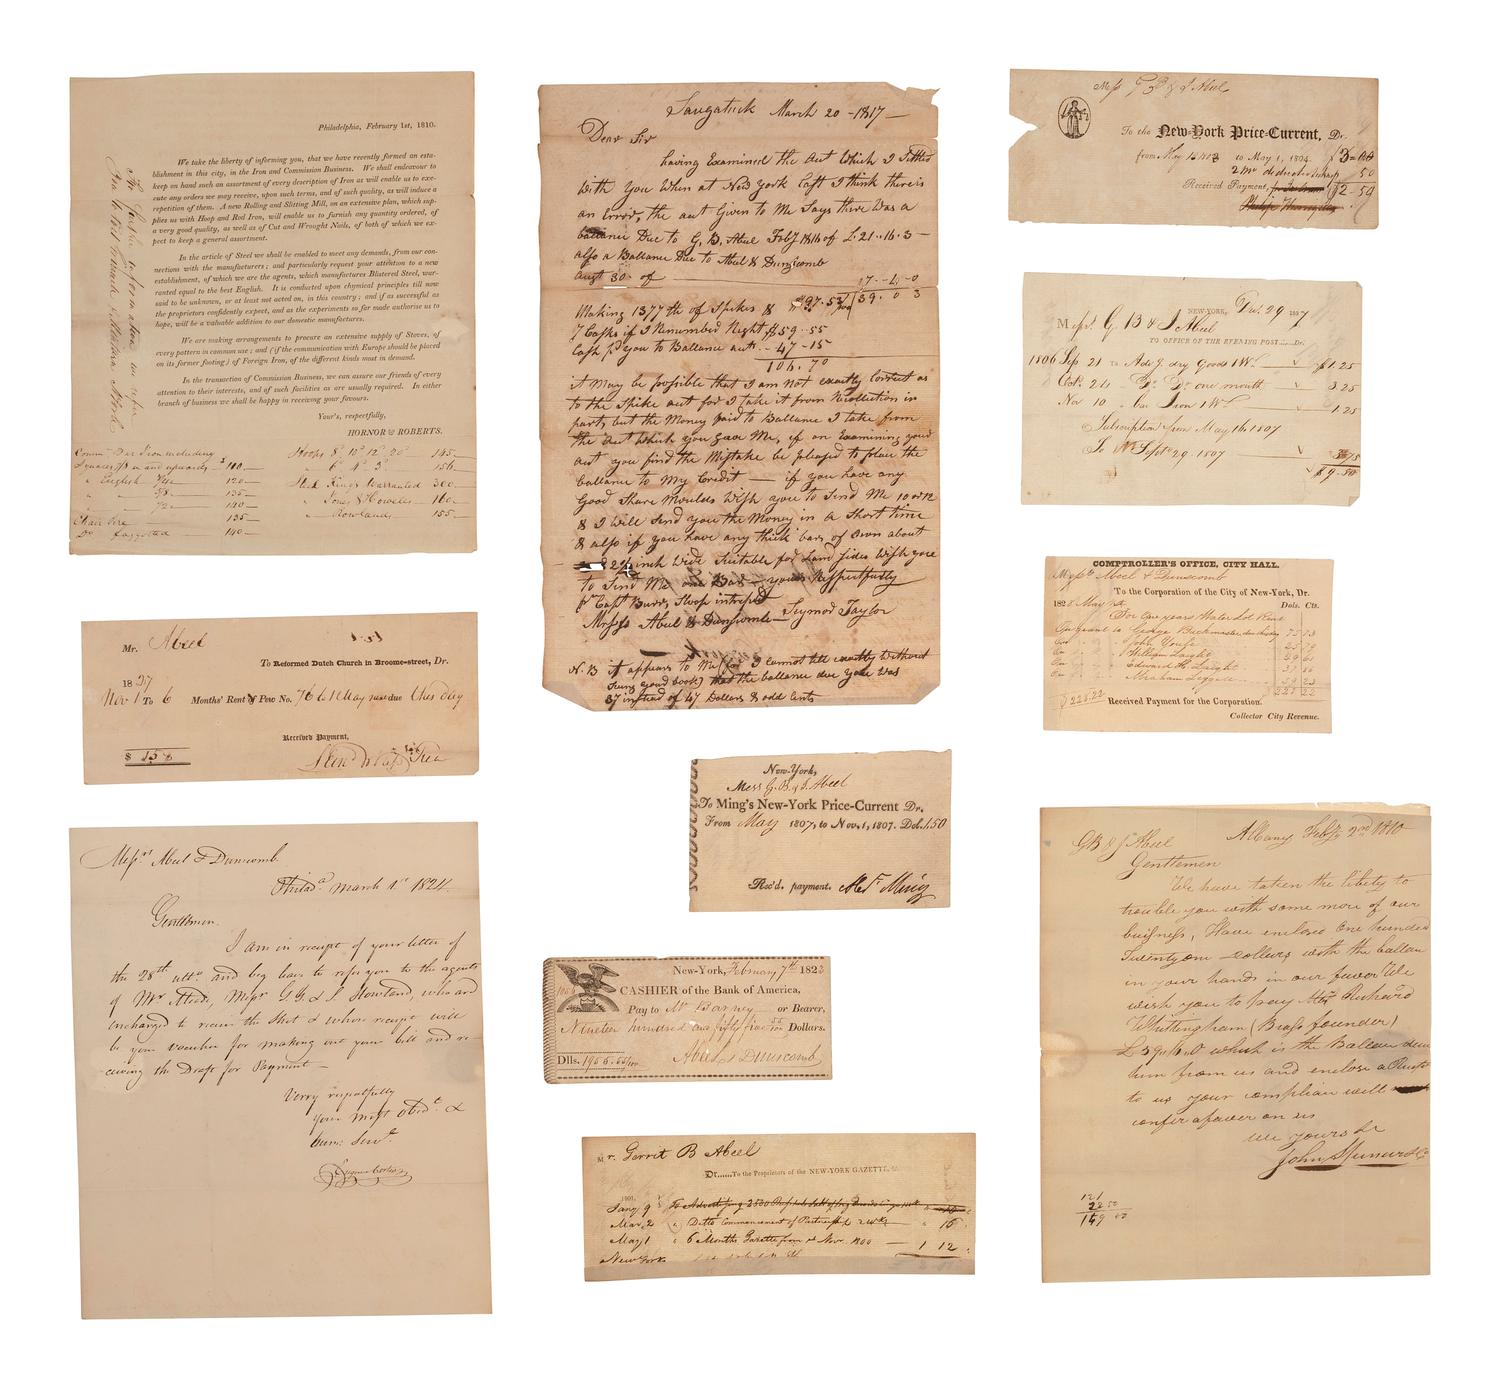 Philadelphia, February 1st, 1810.
We take the liberty of informing you, that we have recently formed an esta-
blishment in this city, in the Iron and Commission Business. We shall endeavour to
keep on hand such an assortment of every description of Iron as will enable us to exe-
cute any orders we may receive, upon such terms, and of such quality, as will induce a
repetition of them. A new Rolling and Slitting Mill, on an extensive plan, which sup-
plies us with Hoop and Rod Iron, will enable us to furnish any quantity ordered, of
a very good quality, as well as of Cut and Wrought Nails, of both of which we ex-
pect to keep a general assortment.
In the article of Steel we shall be enabled to meet any demands, from our con-
nections with the manufacturers; and particularly request your attention to a new
establishment, of which we are the agents, which manufactures Blistered Steel, war-
ranted equal to the best English. It is conducted upon chymical principles till now
said to be unknown, or at least not acted on, in this country; and if as successful as
the proprietors confidently expect, and as the experiments so far made authorise us to
hope, will be a valuable addition to our domestic manufactures.
We are making arrangements to procure an extensive supply of Stoves, of
every pattern in common use; and (if the communication with Europe should be placed
on its former footing) of Foreign Iron, of the different kinds most in demand.
In the transaction of Commission Business, we can assure our friends of every
attention to their interests, and of such facilities as are usually required. In either
branch of business we shall be happy in receiving your favours.
Your's, respectfully,
HORNOR & ROBERTS.
For further information we refer
you to our friends
Bar Iron including
Squares in and upwards $ 110
" English 120
" 5/8 135
" 1/2 140
135
Do faggotted 140
Hoops 8 10 12 20 145
" 6 4 3 156
Steel King's Warranted 300
" Jones & Howels 160
" Rowland 155
Mr. Abeel
To Reformed Dutch Church in Broome-street, Dr.
1827
Nov 1 To 6 Months' Rent of Pew No. 76 to 1 May due this day
Received Payment,
$ 1.58
Messrs Abeel & Dunscomb
Philada March 1st 1824
Gentlemen
I am in receipt of your letter of
the 28th ulto and beg leave to refer you to the agents
of Mr Messrs G. G. & S Howland, who are
to receive the Shot & whose receipt will
be your voucher for making out your bill and re-
ceiving the Draft for Payment
Verry respectfully
Your Most Obedt &
Hum: Servt
Saugatuck March 20 - 1817
Dear Sir
having Examined the act Which I Settled
With you When at New York Last I think there is
an Error, the act Given to Me Says there was a
ballance Due to G. B. Abeel Feby 1816 of L. 21..16.3
also a Ballance Due to Abeel & Dunscomb
augt 30 of 17-4-0
$97.52 39. 0 3
Making 1377 lb of Spikes &
7 Casks if I Remember Right $59-55
Cash pd you to Ballance act 47-15
106.70
it May be possible that I am Not exactly Correct as
to the Spike act for I take it from Recollection in
part, but the Money paid to Ballance I take from
the act Which you gave Me, if on Examining your
act you find the Mistake be pleased to place the
ballance to My Credit — if you have any
Good Share Moulds Wish you to Send Me 10 or 12
& I will Send you the Money in a Short time
& also if you have any thick bars of Iron about
2½ inch Wide Suitable for Land Sides Wish you
to Send Me one Bar — yours Respectfully
pr Capt Burr, Sloop intrepid
Messrs Abeel & Dunscomb Seymor Taylor
N. B it appears to Me (for I cannot tell exactly Without
Seing your book) that the ballance due you Was
37 instead of 47 Dollars & odd Cents
New-York,
Mess G. B. & J. Abeel
To Ming's New-York Price-Current Dr.
From May 1807, to Nov. 1, 1807. Dol. 1.50
Rec'd. payment. Alex Ming
New-York, February 7th 1823
CASHIER of the Bank of America,
Pay to Mr Barney or Bearer,
Nineteen hundred and fifty five 55/100 Dollars.
Dlls. 1955.55/100 Abeel & Dunscomb
Mr. Gerrit B Abeel
Dr......To the Proprietors of the NEW-YORK GAZETTE,
1801.
Jany 9 To Advertising
Mar. 2 " Ditto Commencement of Partnership 2 16
May 1 " 6 Months Gazette from 1st Nov. 1800 1 12
New York
Mess G B & J Abeel
To the New-York Price-Current, Dr.
from May 1 1803 to May 1, 1804. $3=00
50
Received Payment, $2-50
NEW-YORK, Decr. 29 1807
Messrs G B & J Abeel
TO OFFICE OF THE EVENING POST.....Dr.
1806 Sep. 21 to Adv'g dry Goods 1 W. $1 25
Oct. 24 Do Do one month 3 25
Nov 10 bar Iron 1 W. 1 25
Subscription from May 16. 1807
To Septr 29. 1807 3 75
$9.50
COMPTROLLER'S OFFICE, CITY HALL.
Messrs Abeel & Dunscomb
To the Corporation of the City of New-York, Dr.
182 May Dols. Cts.
For One years Water Lot Rent
George Buckmaster 75 73
John Youle 25 79
William Laight 29 61
Edward W. Laight
Abraham Leggett 59 23
$ 221.22 221 22
Received Payment for the Corporation.
Collector City Revenue.
GB & J Abeel Albany Feby 2nd 1810
Gentlemen
We have taken the liberty to
trouble you with some more of our
buisness, Have enclosed One hundred
Twenty one dollars with the ballan
in your hands in our favor We
wish you to pay Mr Richard
Whittingham (Brass founder)
which is the Ballance due
him from us and enclose a Receipt
to us your complian will
confer a favor on us
we yours &c
John
121
28 50
149 50